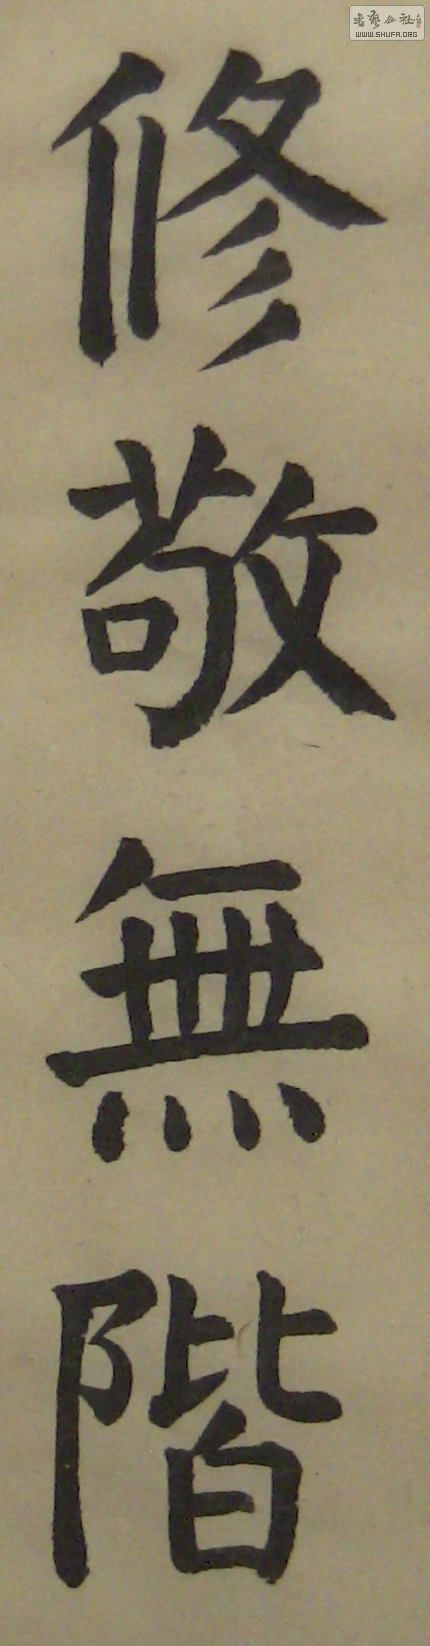 书艺公社
WWW.SHUFA.ORG
修敬無階